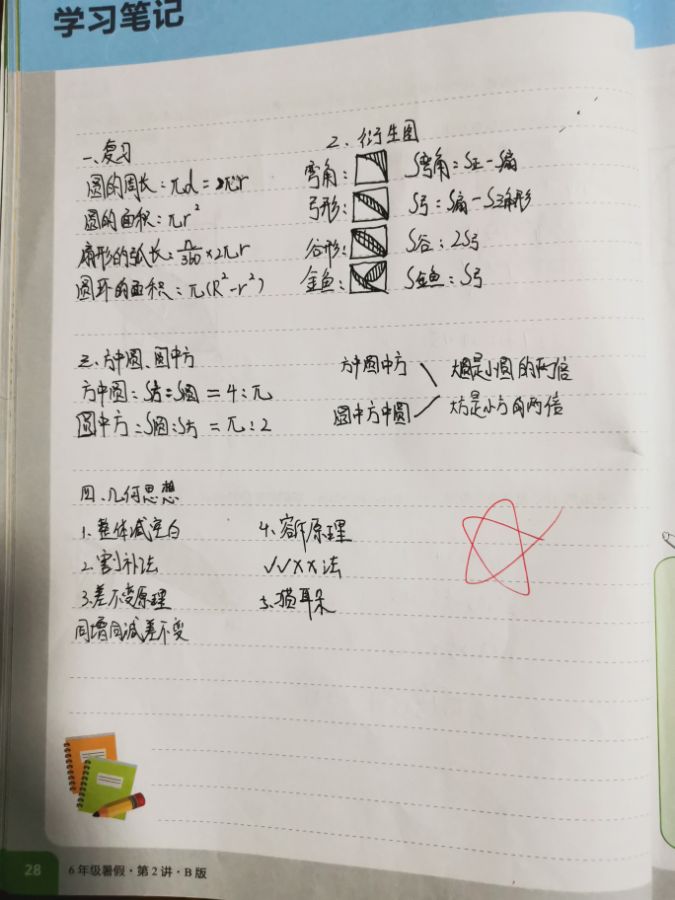 学习笔记
一、复习
圆的周长：πd = 2πr
圆的面积：πr²
扇形的弧长：n/360×2πr
圆环的面积：π(R²-r²)
2、衍生图
弯角： S弯角：S正-S扇
弓形： S弓：S扇-S三角形
谷形： S谷：2S弓
金鱼： S金鱼：S弓
三、方中圆、圆中方
方中圆：S方：S圆 = 4：π
圆中方：S圆：S方 = π：2
方中圆中方 大圆是小圆的两倍
圆中方中圆 大方是小方的两倍
四、几何思想
1、整体减空白
2、割补法
3、差不变原理
同增同减差不变
4、容斥原理
√√××法
5、猫耳朵
28 6年级暑假·第2讲·B版